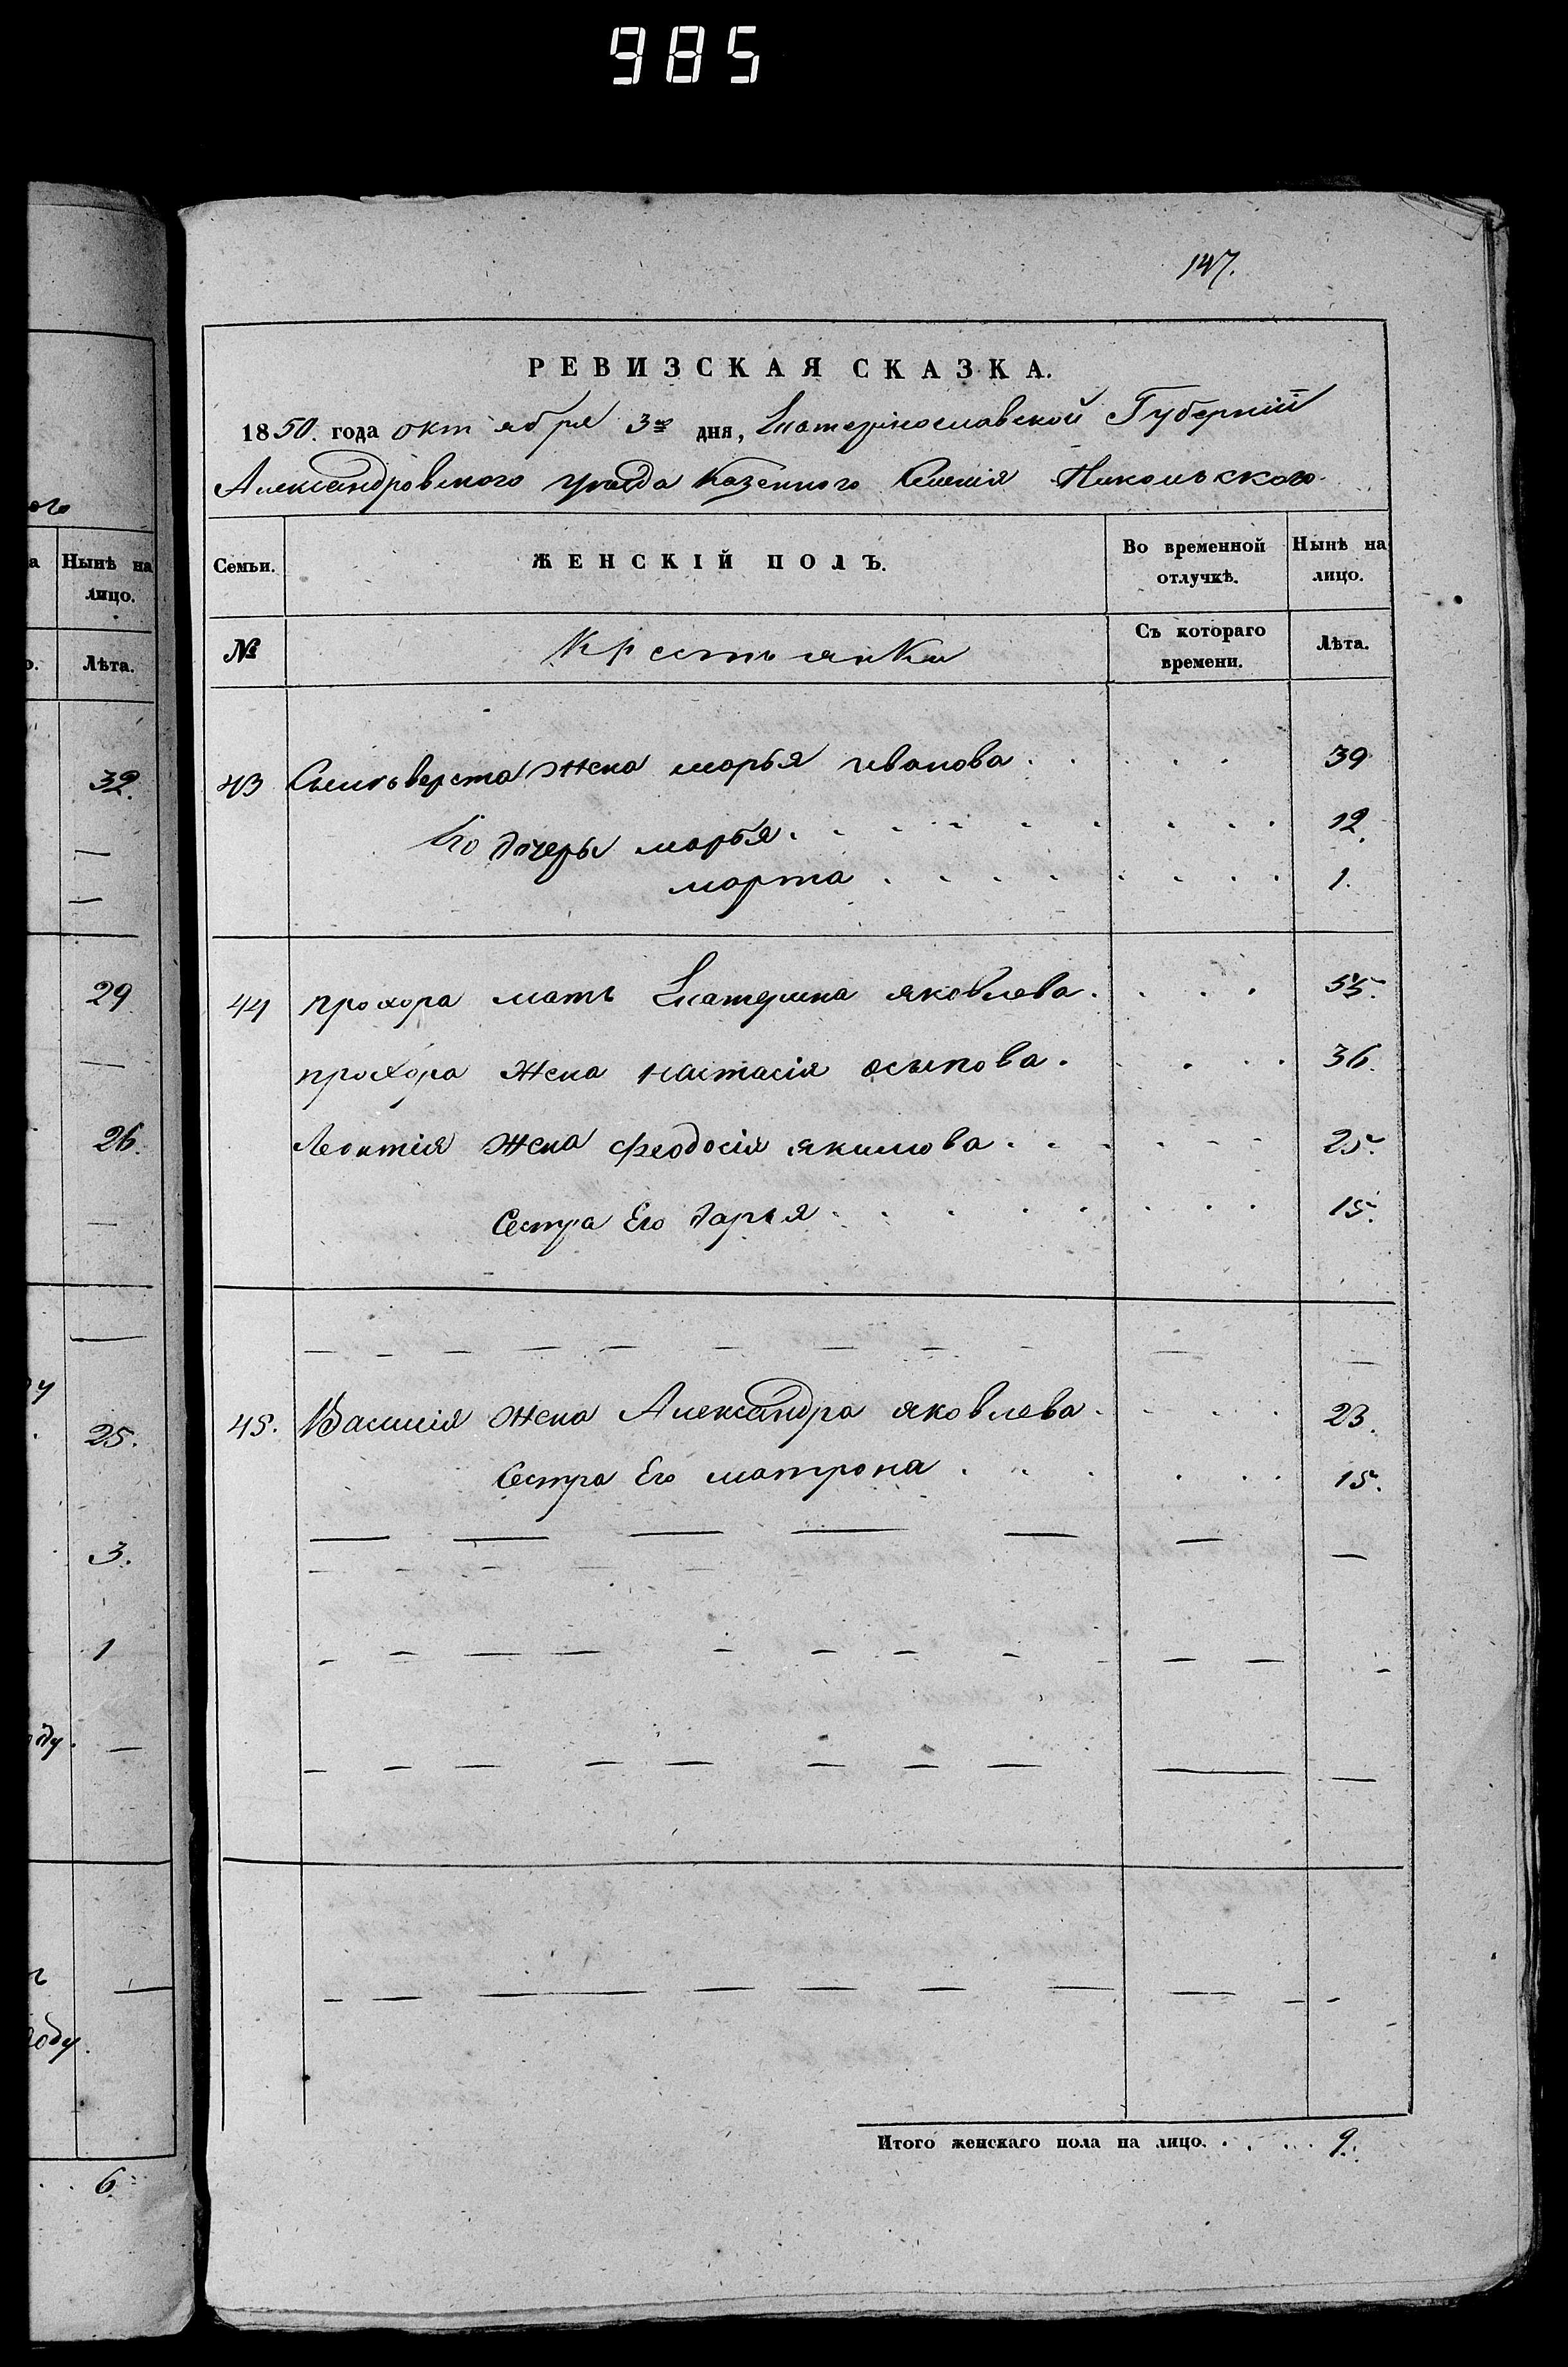 985
147.
РЕВИЗСКАЯ СКАЗКА.
1850. года октября 3го дня, Екатеринославской Губерніи
Александровского уезда Казенного Селенія Никольского
ого
а Нынѣ на лицо.
Семьи. ЖЕНСКІЙ ПОЛЪ. Во временной отлучкѣ. Нынѣ на лицо.
о. Лѣта.
№ Крестьянки Съ котораго времени. Лѣта.
32.
43 Сыльверста жена марья иванова 39
Его дочеры марья 12.
марта 1.
29
44 прохора мать Екатерина яковлева 55.
прохора жена настасія осыпова 36.
26.
Леонтія жена феодосія якимова 25.
Сестра Его дарья 15.
25.
45. Василія жена Александра яковлева 23.
Сестра Его матрона 15.
3.
1
оду.
году.
Итого женскаго пола на лицо. 9.
6